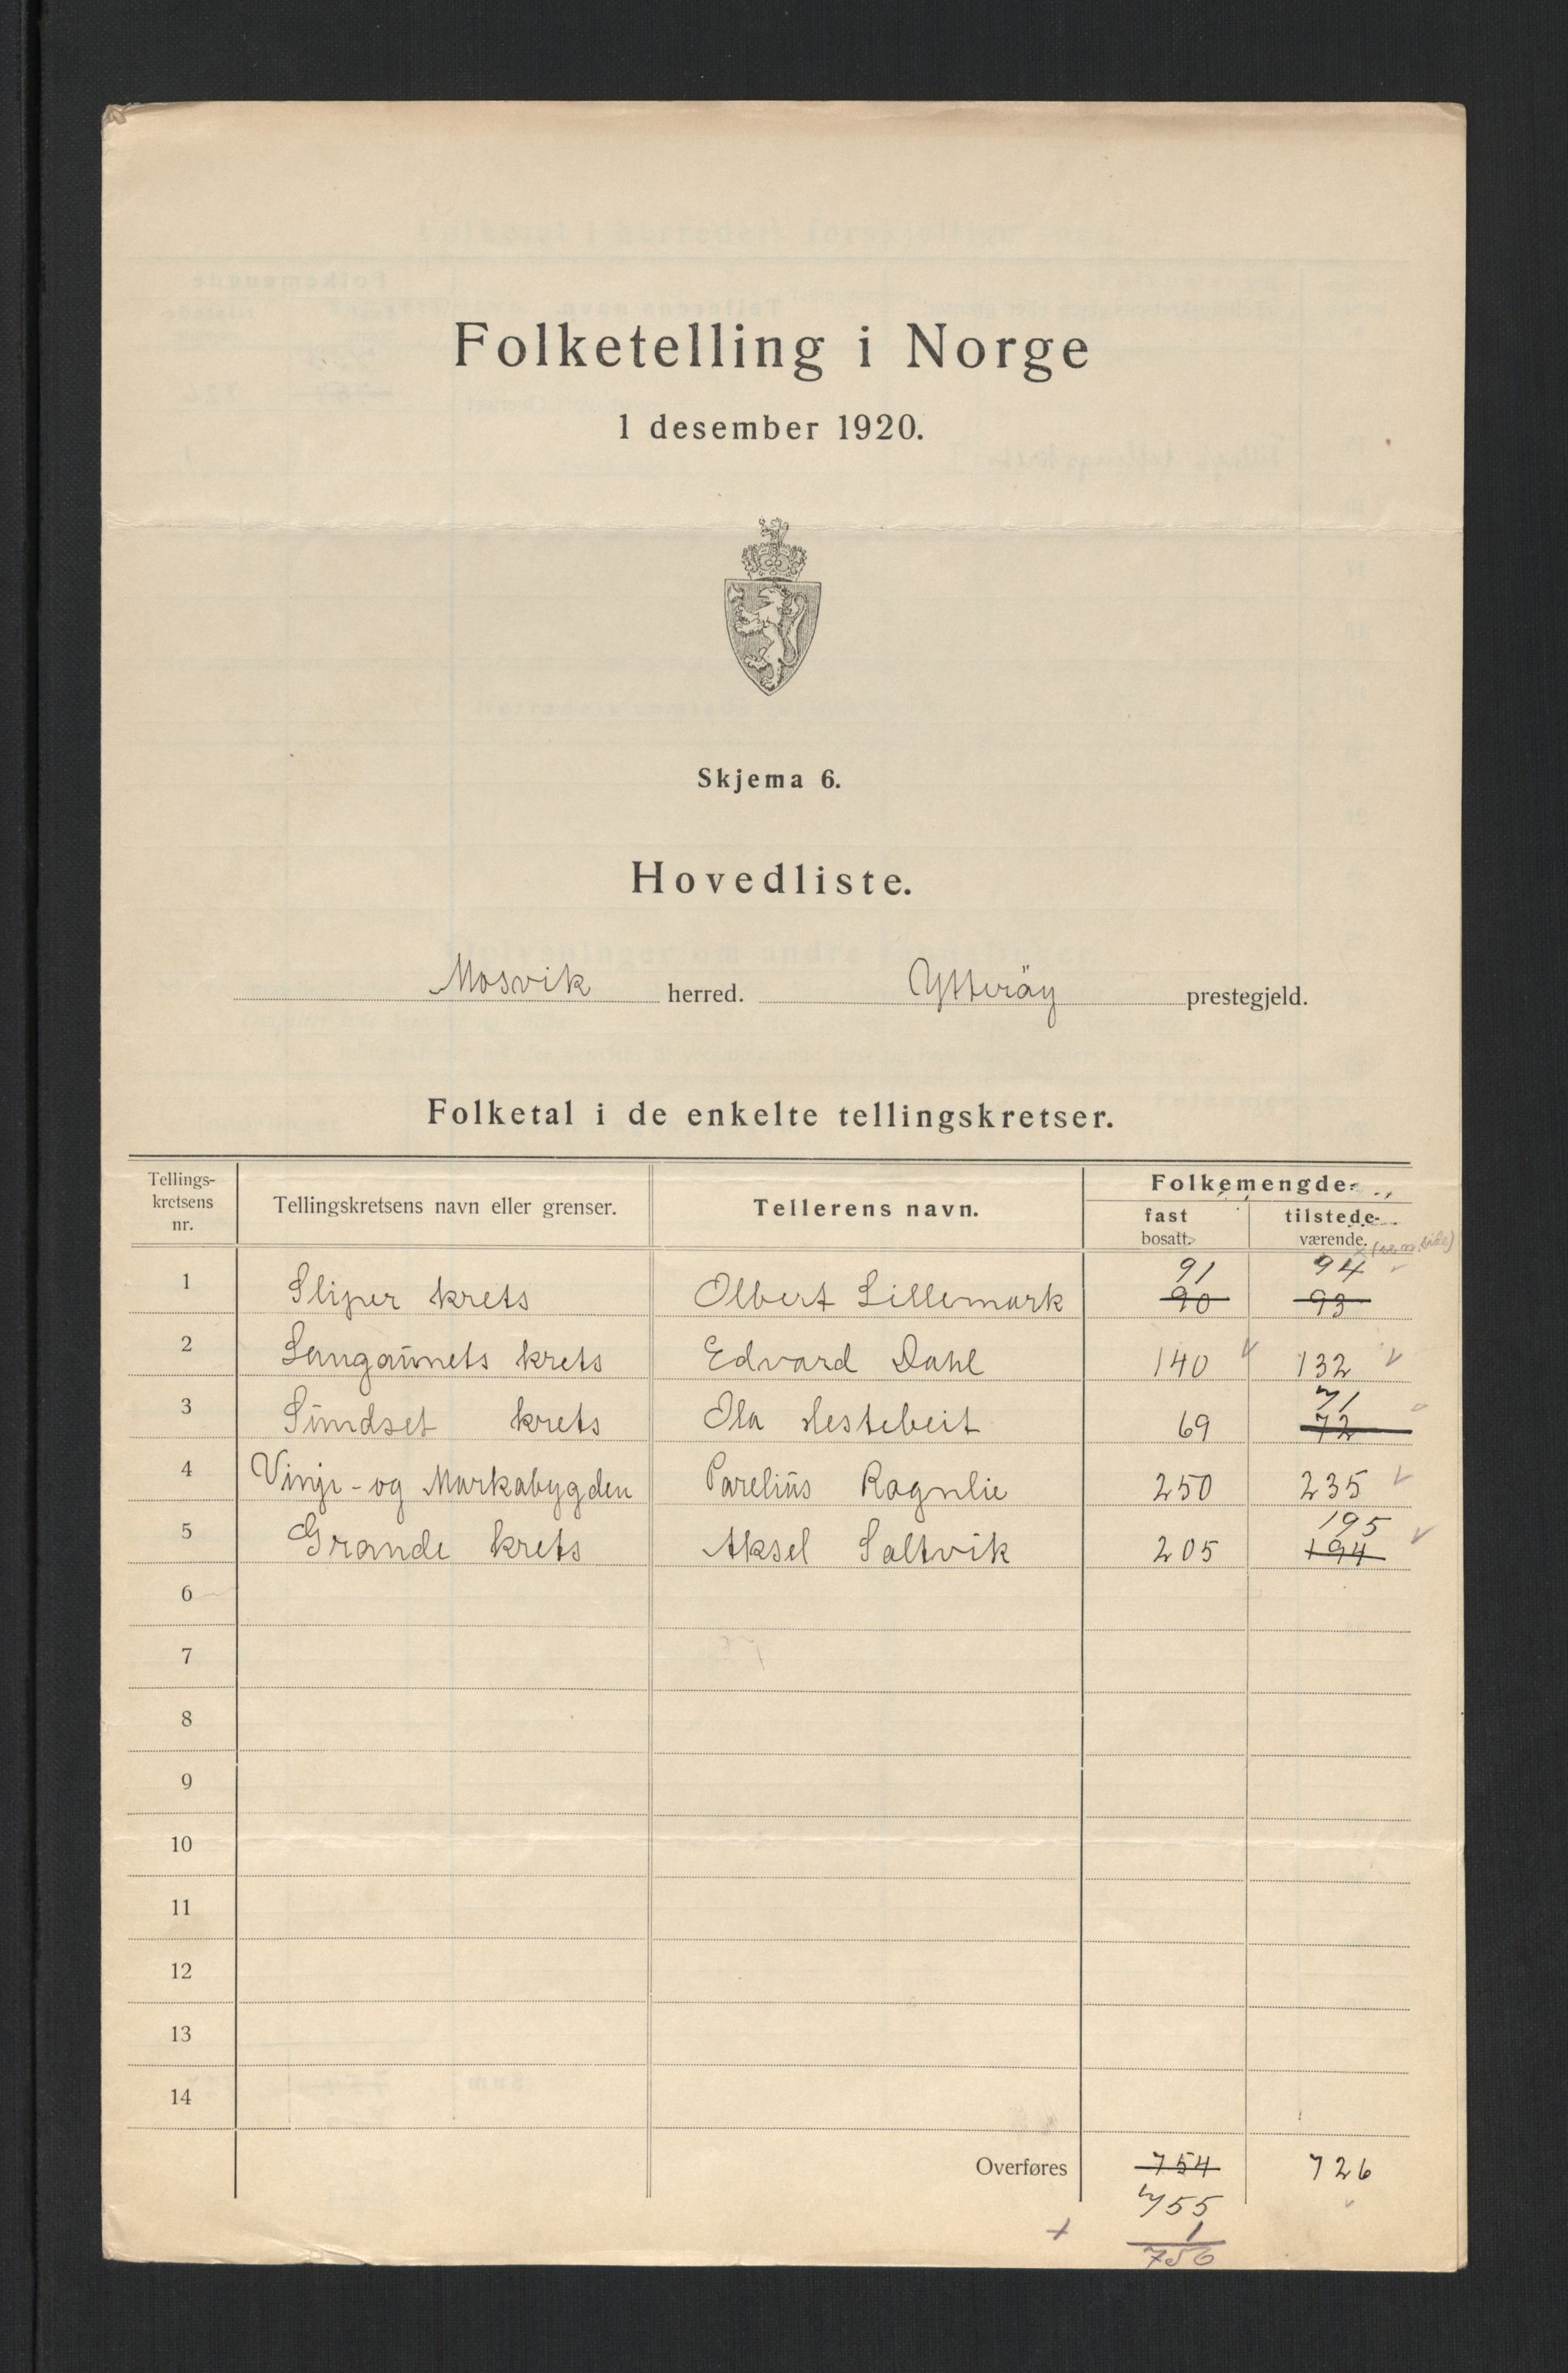 Folketelling i Norge
1 desember 1920.
Skjema 6.
Hovedliste.
Mosvik herred. Ytterøy prestegjeld.
Folketal i de enkelte tellingskretser.
Tellings-
kretsens
nr.
Tellingskretsens navn eller grenser.
Tellerens navn.
Folkemengde:
fast
bosatt.
tilstede-
værende.
91 94
1 Sliper krets Olbert Lillemark 90 93
2 Langaunets krets Edvard Dahl 140 132
71
3 Sundset krets Ola Hestebeit 69 72
4 Vinje- og Markabygden Parelius Ragnlie 250 235
195
5 Grande krets Aksel Saltvik 205 194
6
7
8
9
10
11
12
13
14
Overføres 754 726
755
+ 1
756